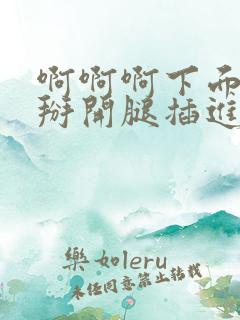 啊啊啊下面
掰開腿插進
樂如leru
未經同意禁止轉載